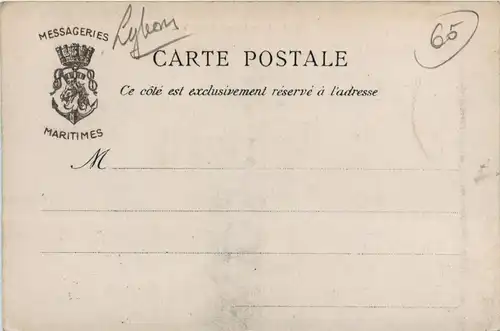 MESSAGERIES
MARITIMES
65
CARTE POSTALE
Ce côté est exclusivement réservé à l'adresse
M